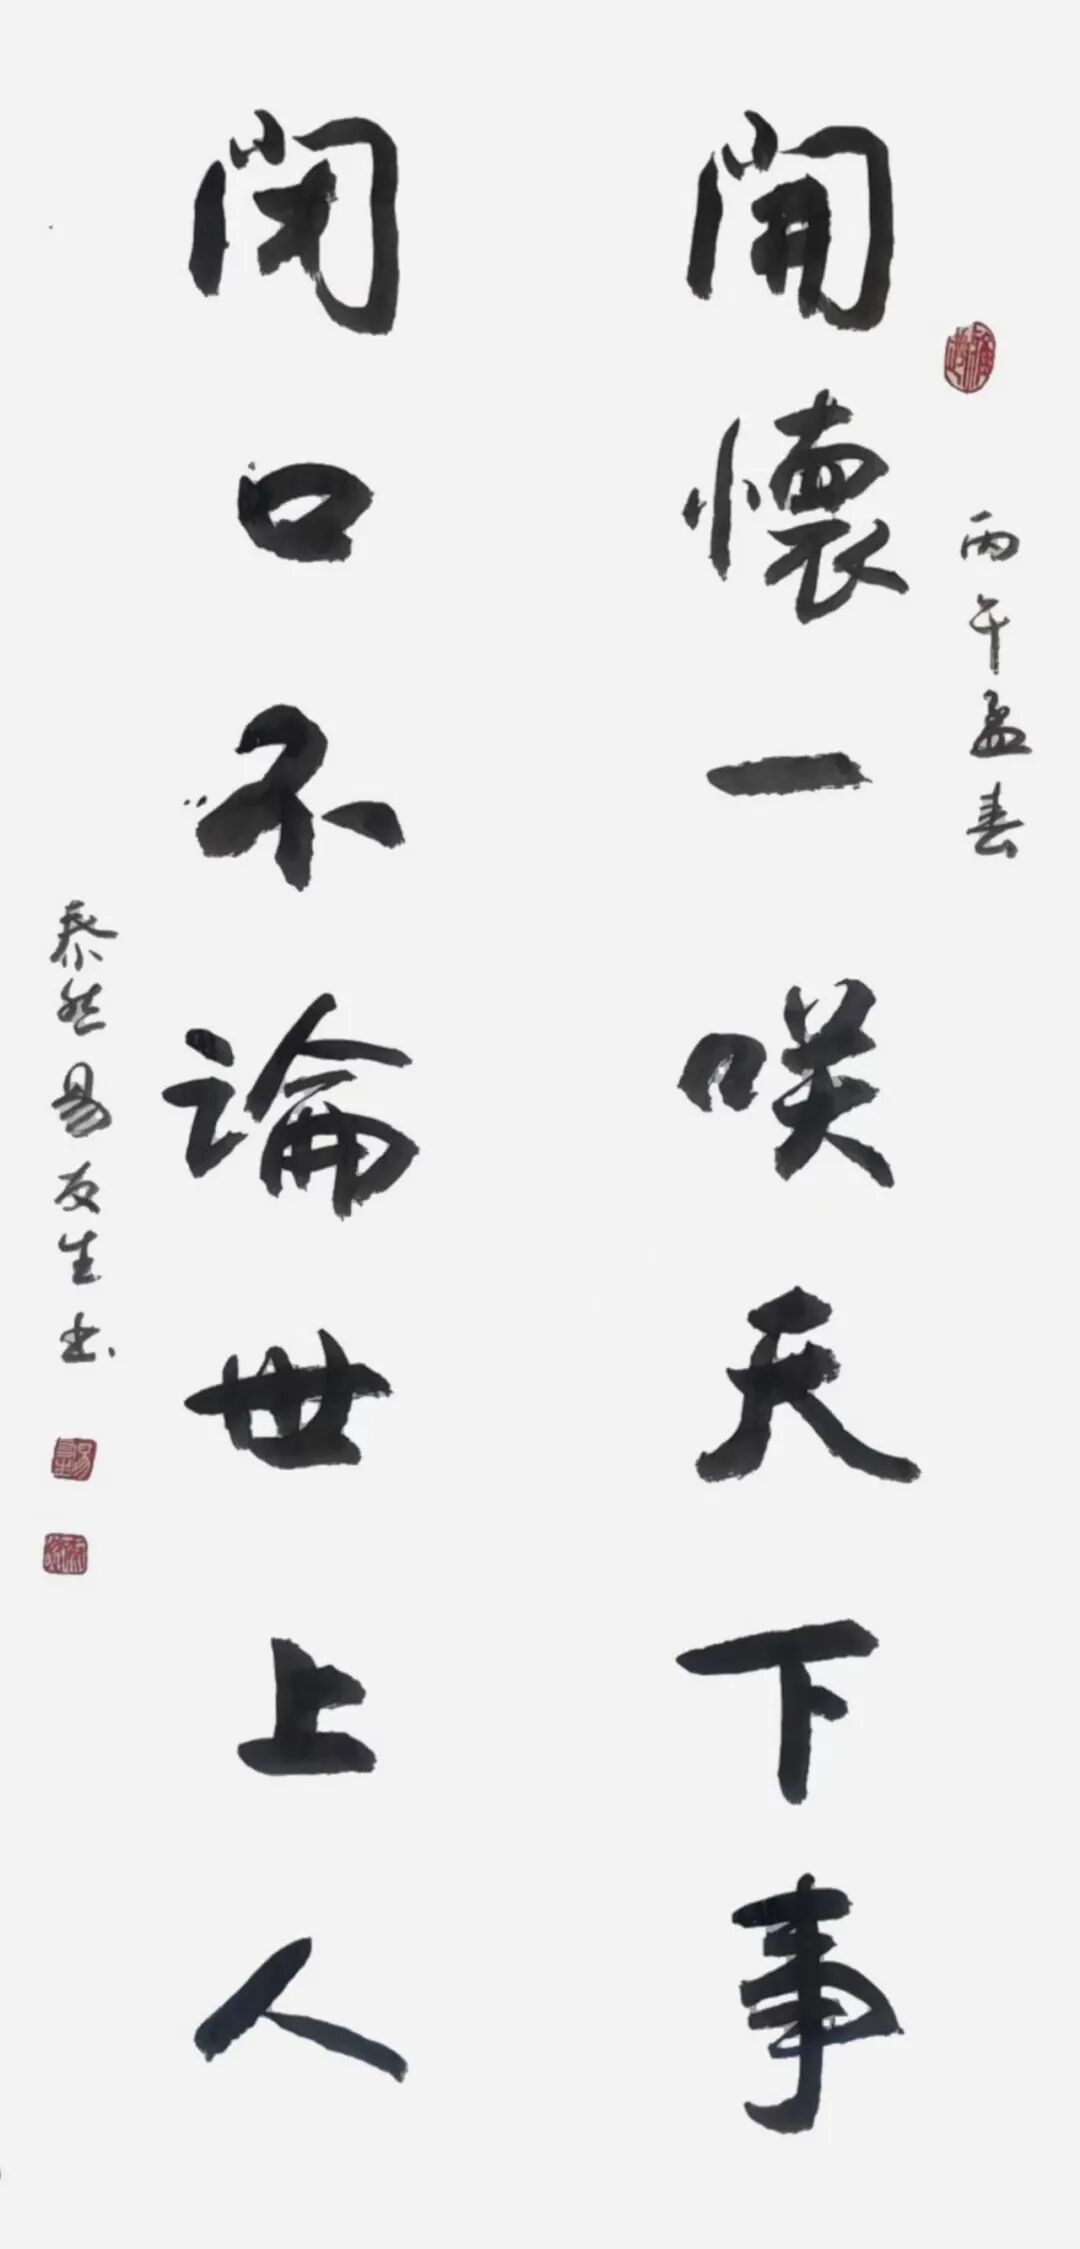 丙午孟春
開懷一咲天下事
閉口不論世上人
泰然易友生书